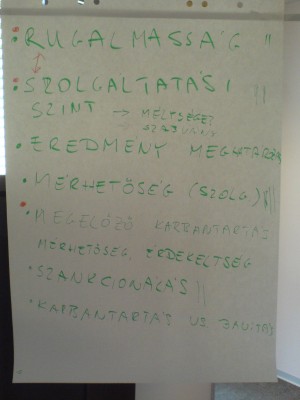 : RUGALMASSÁG "
: SZOLGÁLTATÁSI ||
SZINT →
• EREDMÉNY
• MÉRHETŐSÉG (SZOLG)
• MEGELŐZŐ KARBANTARTÁS
MÉRHETŐSÉG, ÉRDEKELTSÉG
• SZANKCIONÁLÁS ||
• KARBANTARTÁS VS JAVÍTÁS